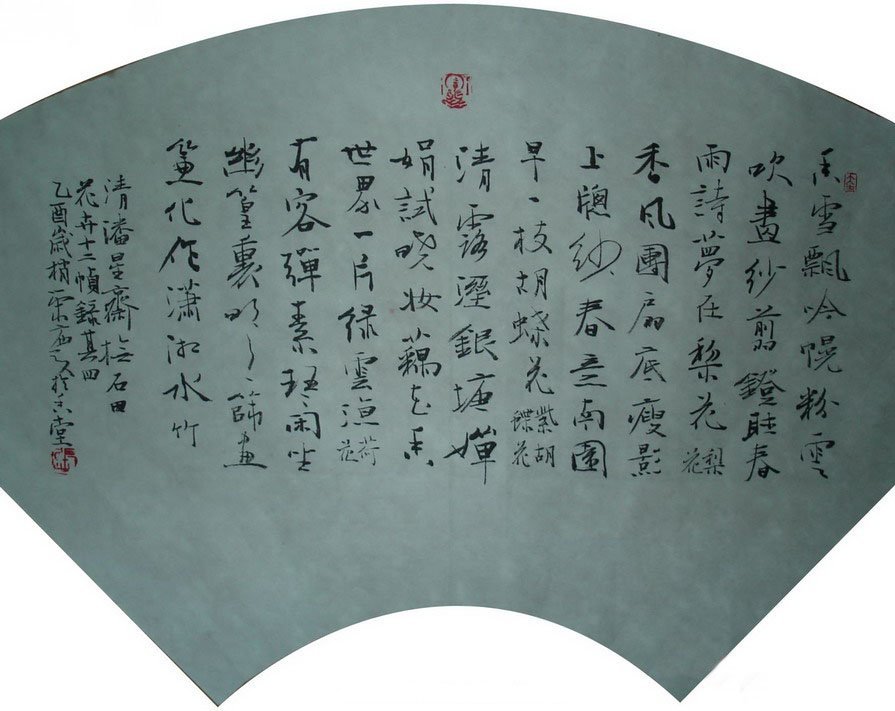 香雪飄吟幌粉雲
吹畫紗翦鐙聽春
雨詩夢在梨花 梨花
香風團扇底瘦影
上牕紗春意南園
早一枝胡蝶花 紫胡蝶花
清露溼銀塘嬋
娟試曉妝藕花香
世界一片綠雲涼 荷花
有客彈素琴閒坐
幽篁裏明月篩畫
簾化作瀟湘水 竹
清潘星齋撫石田
花卉十二幀錄其四
乙酉歲梢 於 堂